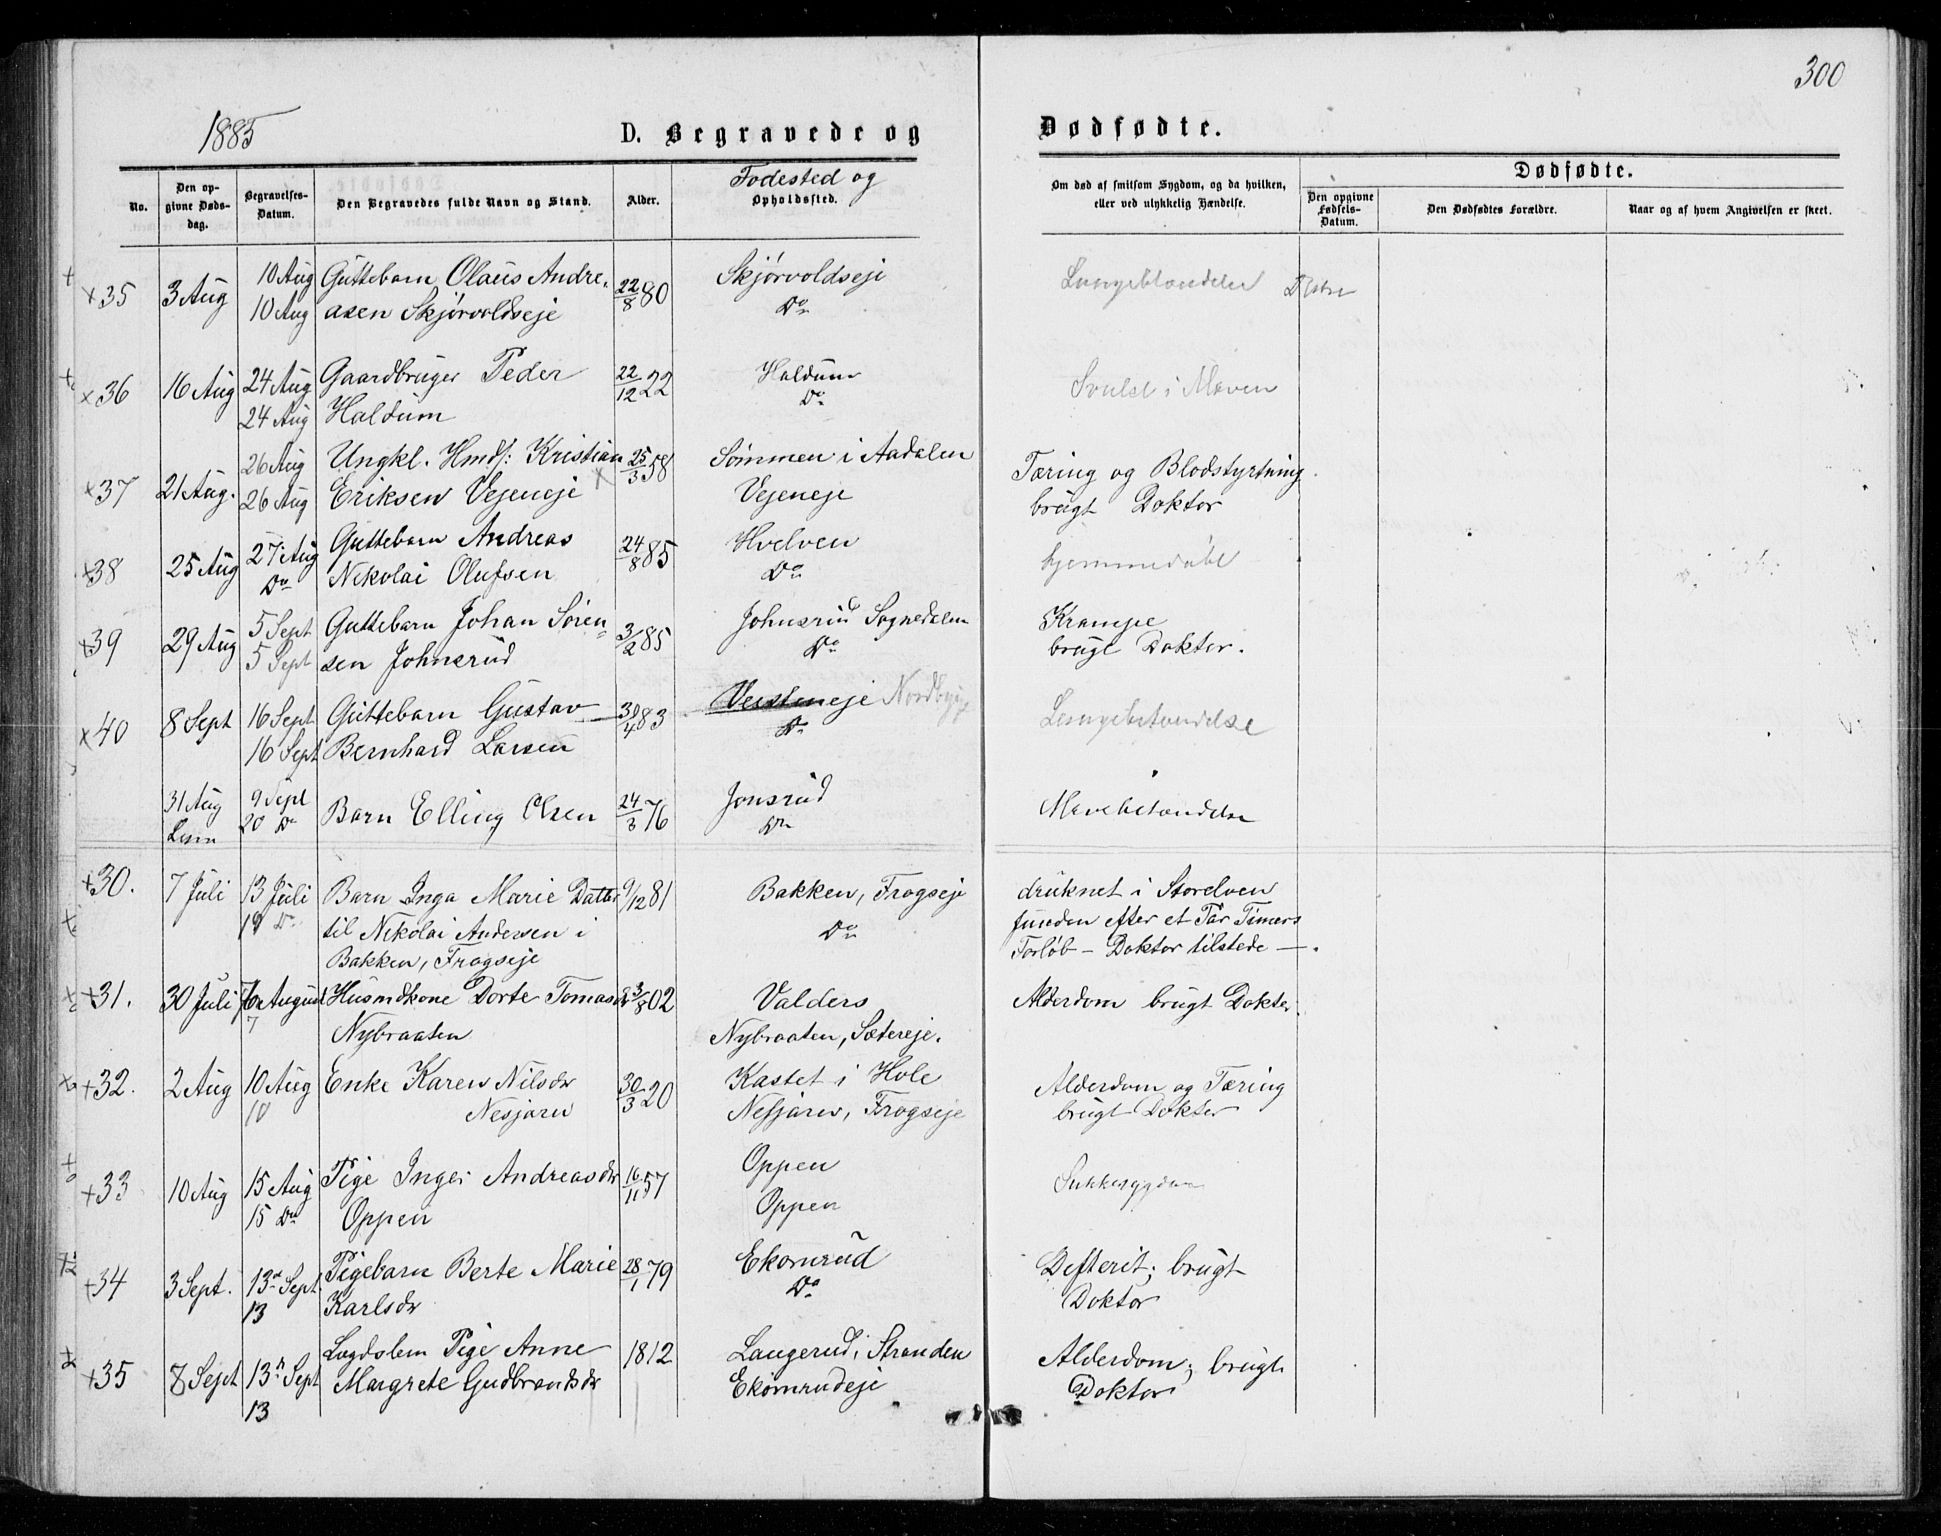 300
1885
D. Begravede og Dødfødte.
No.
Den opgivne Dødsdag.
Begravelses-Datum.
Den Begravedes fulde Navn og Stand.
Alder.
Fodested og
Opholdssted.
Om død af smitsom Sygdom, og da hvilken,
eller ved ulykkelig Hændelse.
Dødfødte.
Den opgivne Fødsels-Datum.
Den Dødfødtes Forældre.
Naar og af hvem Angivelsen er skeet.
+35 3 Aug 10 Aug Guttebarn Olaus Andre- 22/8 80 Skjørvoldseje Lungebtændelse
10 Aug asen Skjørvoldseje Do
×36 16 Aug 24 Aug Gaardbruger Peder 22/12 22 Haldum Svulst i Maven
24 Aug Haldum Do
×37 21 Aug. 26 Aug Ungkl. Hmds: Kristian 25/3 58 Sømmen i Aadalen Tæring og Blodstyrtning
26 Aug Eriksen Vejeneje Vejeneje brugt Doktor
×38 25 Aug 27 Aug Guttebarn Andreas 24/8 85 Hvelven hjemmedøbt
Do Nikolai Olufsen Do
×39 29 Aug 5 Sept Guttebarn Johan Søren= 3/2 85 Johnsrud Sognedalen Krampe
5 Sept sen Johnsrud Do brugt Doktor.
×40 8 Sept 16 Sept Guttebarn Gustav 30/4 83 Vesteneje Nordbyeje Lungebetændelse
16 Sept Bernhard Larsen Do
31 Aug 9 Sept Barn Elling Olsen 24/3 76 Jonsrud Mavebetændelse
20 Do Do
+30. 7 Juli 13 Juli Barn Inga Marie Datter 9/12 81 Bakken, Frogseje druknet i Storelven
19 Do til Nikolai Andersen i Do funden efter et Par Timers
Bakken, Frogseje Forløb – Doktor tilstede –.
+31. 30 Juli 6 August Husmdkone Dorte Tomasdr 3/8 02 Valders Alderdom brugt Doktor.
7 Nybraaten Nybraaten, Sætereje.
+32. 2 Aug 10 Aug Enke Karen Nilsdr 30/3 20 Kastet i Hole Alderdom og Tæring
10 Nesjarn Nesjarn, Frogseje brugt Doktor
+33 10 Aug 15 Aug Pige Inger Andreasdr 16/11 57 Oppen Sukkersygdom
15 Do Oppen Oppen
+34 3 Sept. 13 Sept Pigebarn Berte Marie 28/1 79 Ekornrud Defterit; brugt
13 Karlsdr Do Doktor
+35 8 Sept 13 Sept Lægdslem Pige Anne 1812 Laugerud i Stranden Alderdom; brugt
13 Margrete Gudbrandsdr Ekornrudeje Doktor